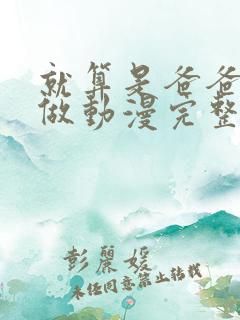 就算是爸爸
做動漫完整
彭麗媛
未任同意禁止转载